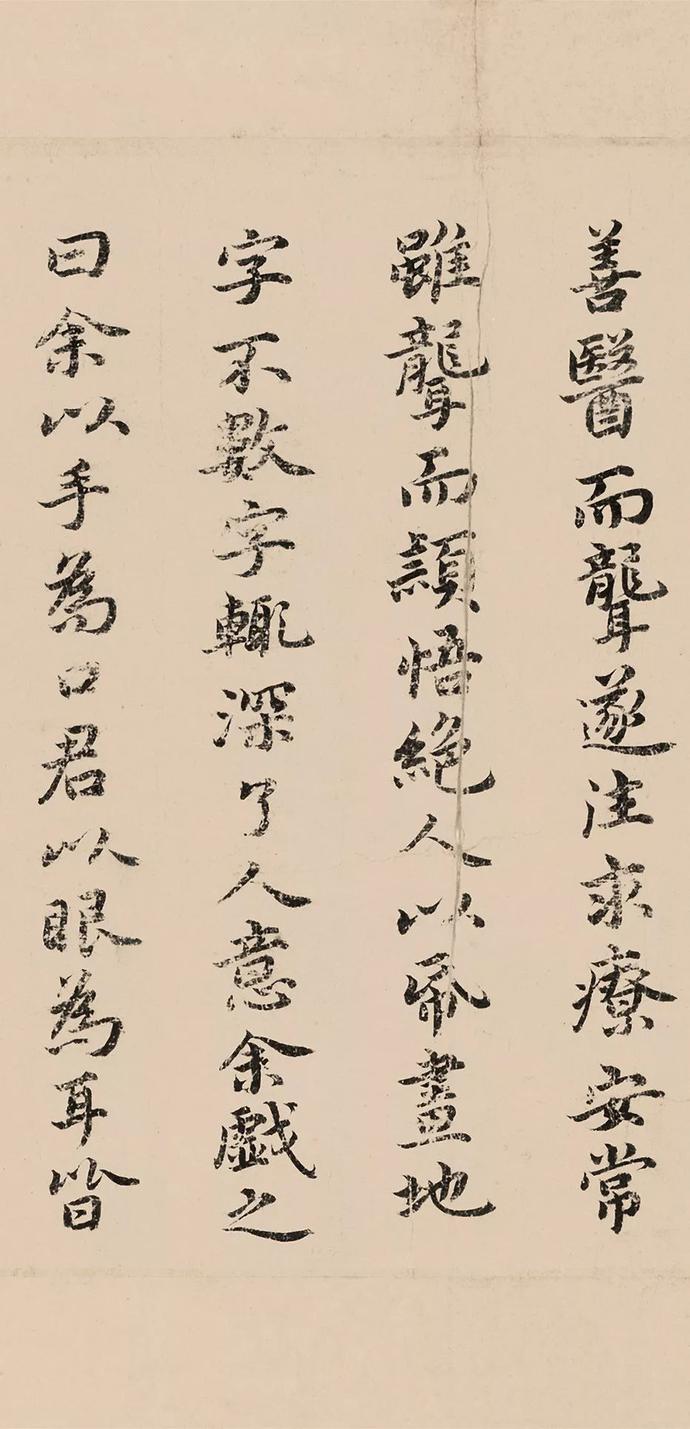 善醫而聾遂往求療安常
雖聾而穎悟絶人以帋畫地
字不數字輒深了人意余戲之
曰余以手為口君以眼為耳皆